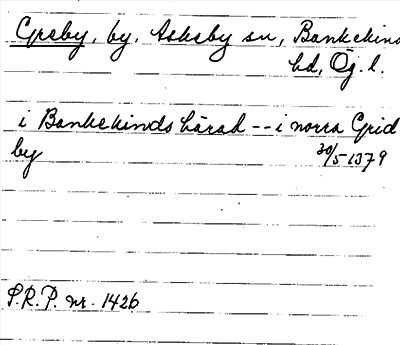 Greby, by, Askeby sn, Bankekind
hd, Ög. l.
i Bankekinds härad -- i norra Grid
by 30/5-1379
S.R.P. nr. 1426